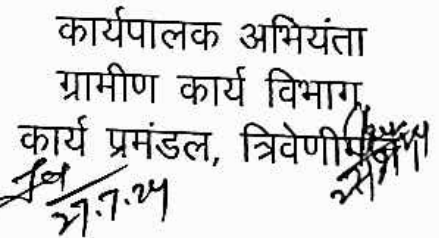 कार्यपालक अभियंता
ग्रामीण कार्य विभाग
कार्य प्रमंडल, त्रिवेणीगंज
27.7.24